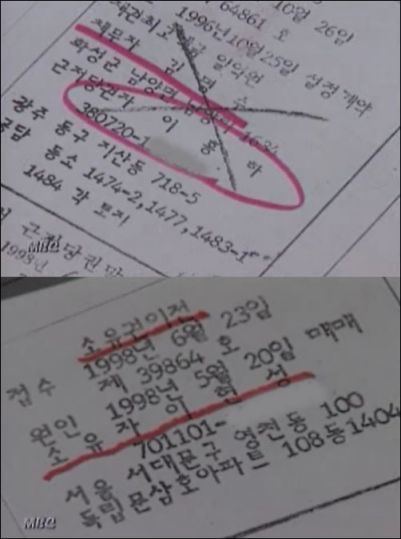 10월 26일
64861 호
1996년10월25일 설정계약
일억원
채무자 김 명 수
화성군 남양면 남양리 1634
근저당권자 이 용 하
380720-1
광주 동구 지산동 718-5
동소 1474-2,1477,1483-1
1484 각 토지
MBC
근저당권
1998년
소유권이전
접수 1998년 6월 23일
제 39864 호
원인 1998년 5월 20일 매매
소유자 이 성
701101-
서울 서대문구 영천동 100
독립문삼호아파트 108동1404
MBC